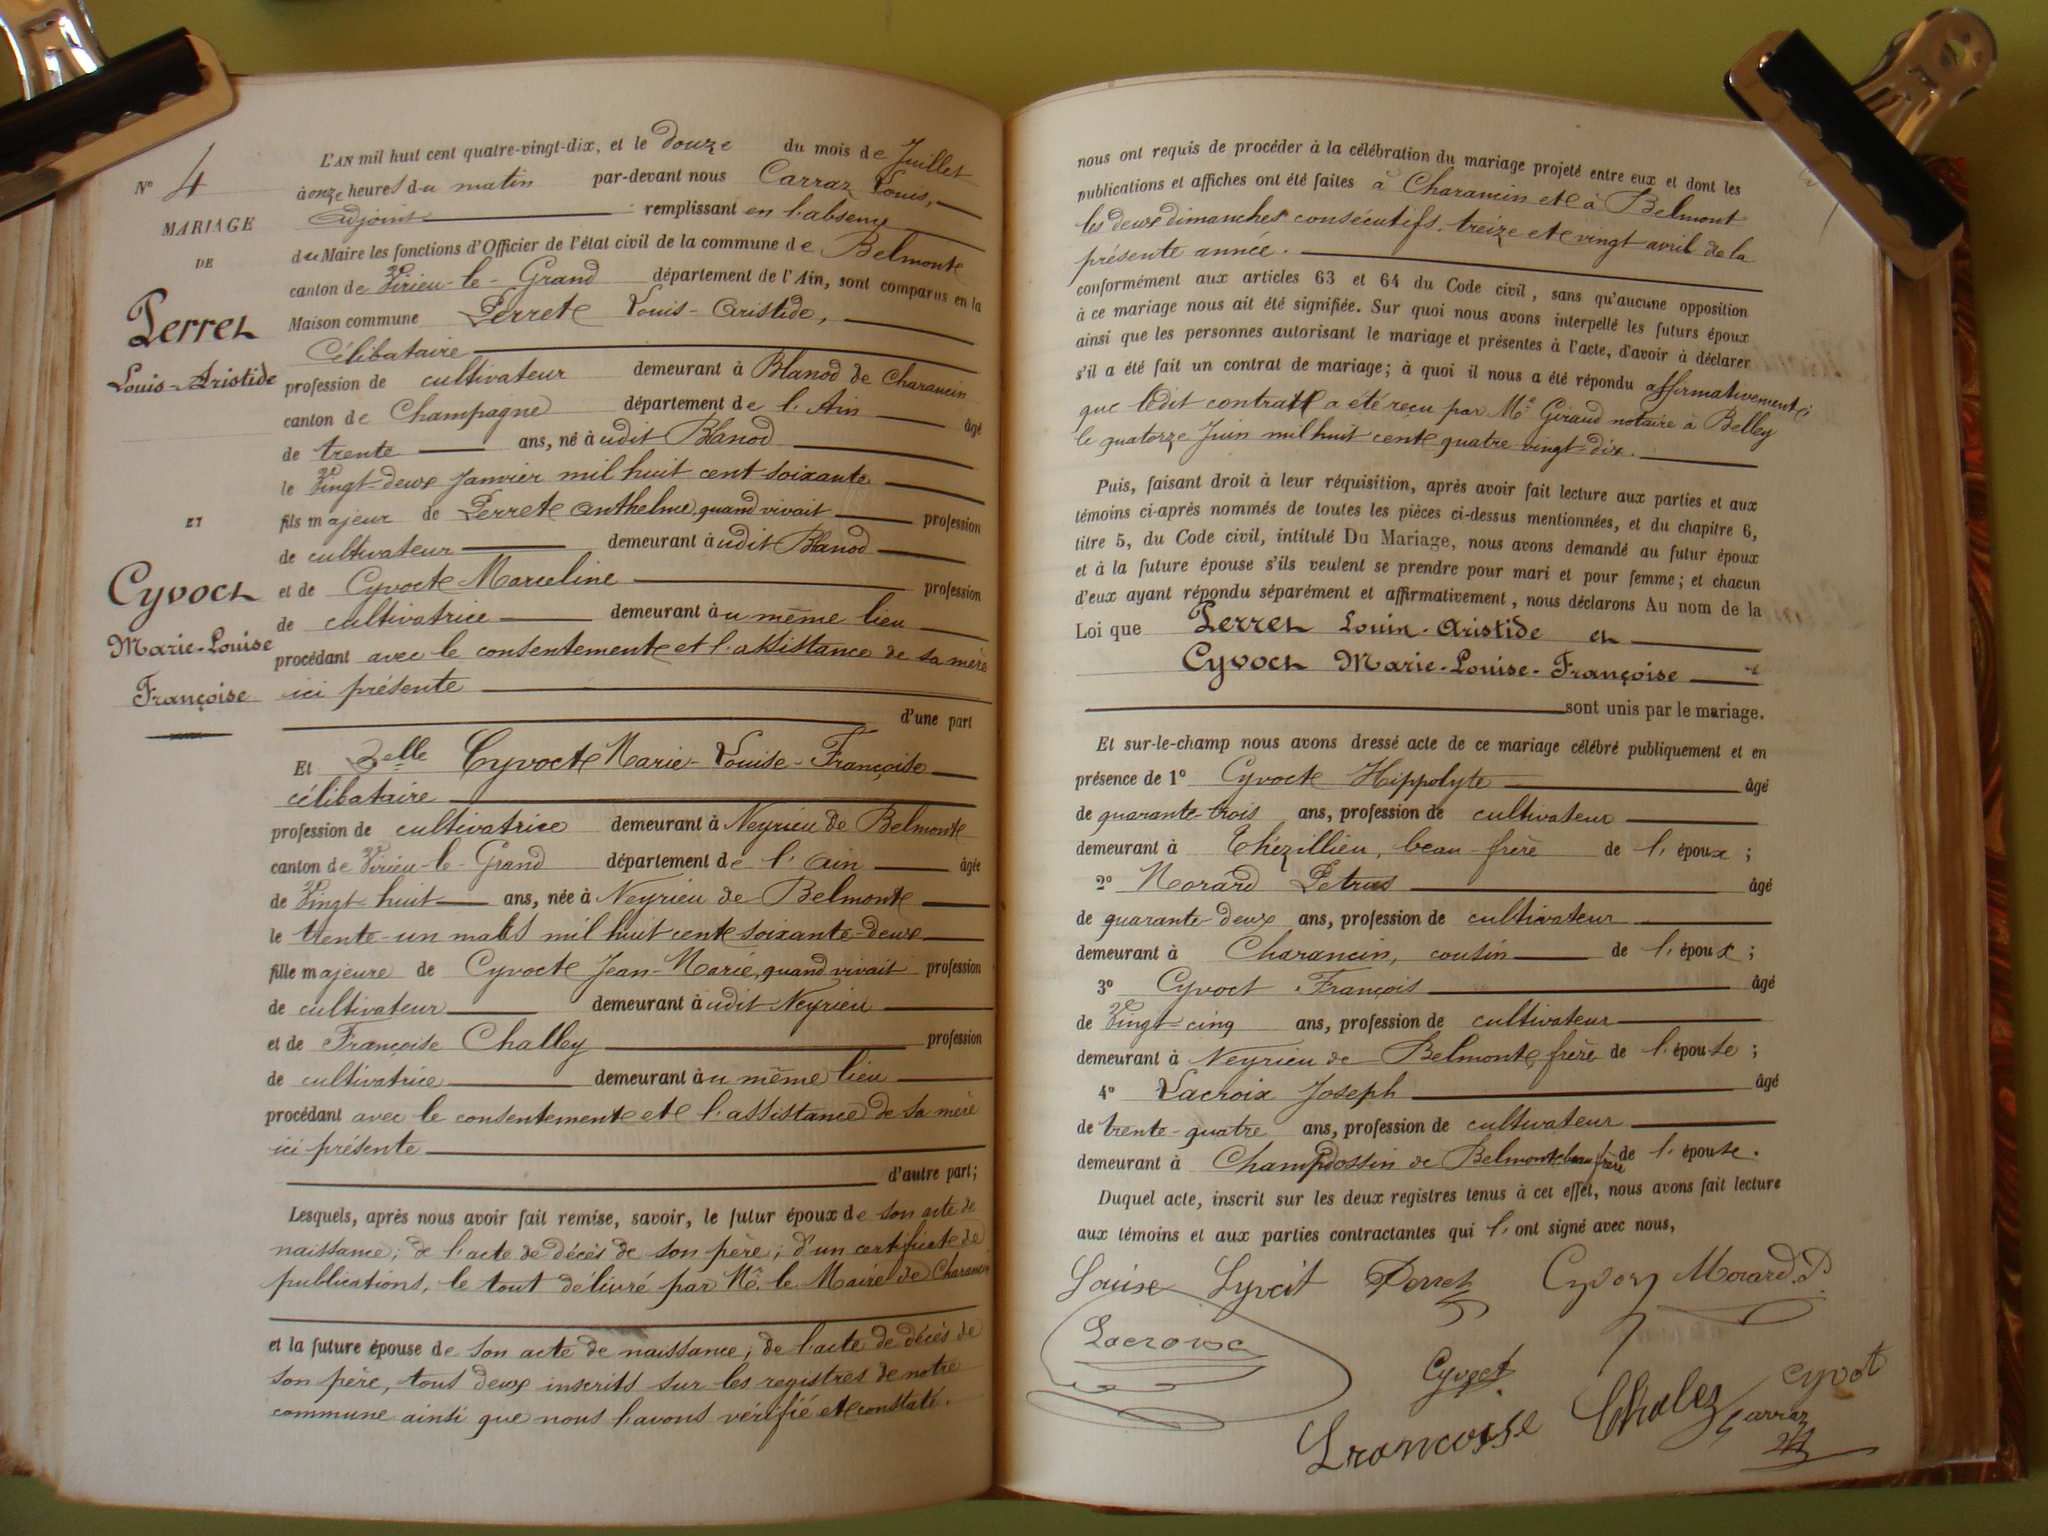 N° 4
MARIAGE
DE
Perret
Louis-Aristide
ET
Cyvoct
Marie-Louise
Françoise
L'AN mil huit cent quatre-vingt-dix, et le douze du mois de Juillet
à onze heures du matin par-devant nous Carraz Louis,
adjoint remplissant en l'absence
du Maire les fonctions d'Officier de l'état civil de la commune de Belmont
canton de Virieu-le-Grand département de l'Ain, sont comparus en la
Maison commune Perret Louis-Aristide,
Célibataire
profession de cultivateur demeurant à Blanod de Charancin
canton de Champagne département de l'Ain âgé
de trente ans, né à udit Blanod
le Vingt-deux Janvier mil huit cent soixante
fils majeur de Perret Anthelme, quand vivait profession
de cultivateur demeurant à udit Blanod
et de Cyvoct Marceline profession
de cultivatrice demeurant à u même lieu
procédant avec le consentement et l'assistance de sa mère
ici présente
d'une part
Et Delle Cyvoct Marie-Louise-Françoise
célibataire
profession de cultivatrice demeurant à Neyrieu de Belmont
canton de Virieu-le-Grand département de l'Ain âgée
de Vingt-huit ans, née à Neyrieu de Belmont
le trente-un mars mil huit cent soixante-deux
fille majeure de Cyvoct Jean-Marie, quand vivait profession
de cultivateur demeurant à udit Neyrieu
et de Françoise Challey profession
de cultivatrice demeurant à u même lieu
procédant avec le consentement et l'assistance de sa mère
ici présente
d'autre part;
Lesquels, après nous avoir fait remise, savoir, le futur époux de son acte de
naissance; de l'acte de décès de son père; d'un certificat de
publications, le tout délivré par Mr. le Maire de Charancin
et la future épouse de son acte de naissance; de l'acte de décès de
son père, tous deux inscrits sur les registres de notre
commune ainsi que nous l'avons vérifié et constaté.
nous ont requis de procéder à la célébration du mariage projeté entre eux et dont les
publications et affiches ont été faites à Charancin et à Belmont
les deux dimanches consécutifs treize et vingt avril de la
présente année.
conformément aux articles 63 et 64 du Code civil, sans qu'aucune opposition
à ce mariage nous ait été signifiée. Sur quoi nous avons interpellé les futurs époux
ainsi que les personnes autorisant le mariage et présentes à l'acte, d'avoir à déclarer
s'il a été fait un contrat de mariage; à quoi il nous a été répondu affirmativement;
que ledit contrat a été reçu par Me Giraud notaire à Belley
le quatorze Juin mil huit cent quatre-vingt-dix.
Puis, faisant droit à leur réquisition, après avoir fait lecture aux parties et aux
témoins ci-après nommés de toutes les pièces ci-dessus mentionnées, et du chapitre 6,
titre 5, du Code civil, intitulé Du Mariage, nous avons demandé au futur époux
et à la future épouse s'ils veulent se prendre pour mari et pour femme; et chacun
d'eux ayant répondu séparément et affirmativement, nous déclarons Au nom de la
Loi que Perret Louis-Aristide et
Cyvoct Marie-Louise-Françoise
sont unis par le mariage.
Et sur-le-champ nous avons dressé acte de ce mariage célébré publiquement et en
présence de 1° Cyvoct Hippolyte âgé
de quarante-trois ans, profession de cultivateur
demeurant à Thézillieu, beau-frère de l'époux;
2° Morard Petrus âgé
de quarante-deux ans, profession de cultivateur
demeurant à Charancin, cousin de l'époux;
3° Cyvoct François âgé
de Vingt-cinq ans, profession de cultivateur
demeurant à Neyrieu de Belmont, frère de l'épouse;
4° Lacroix Joseph âgé
de trente-quatre ans, profession de cultivateur
demeurant à Champdossin de Belmont beau frère de l'épouse.
Duquel acte, inscrit sur les deux registres tenus à cet effet, nous avons fait lecture
aux témoins et aux parties contractantes qui l'ont signé avec nous,
Louise Cyvoct Perret Cyvoct Morard. P
Lacroix
Cyvoct
Cyvot
Francoisse Chalez
Carraz